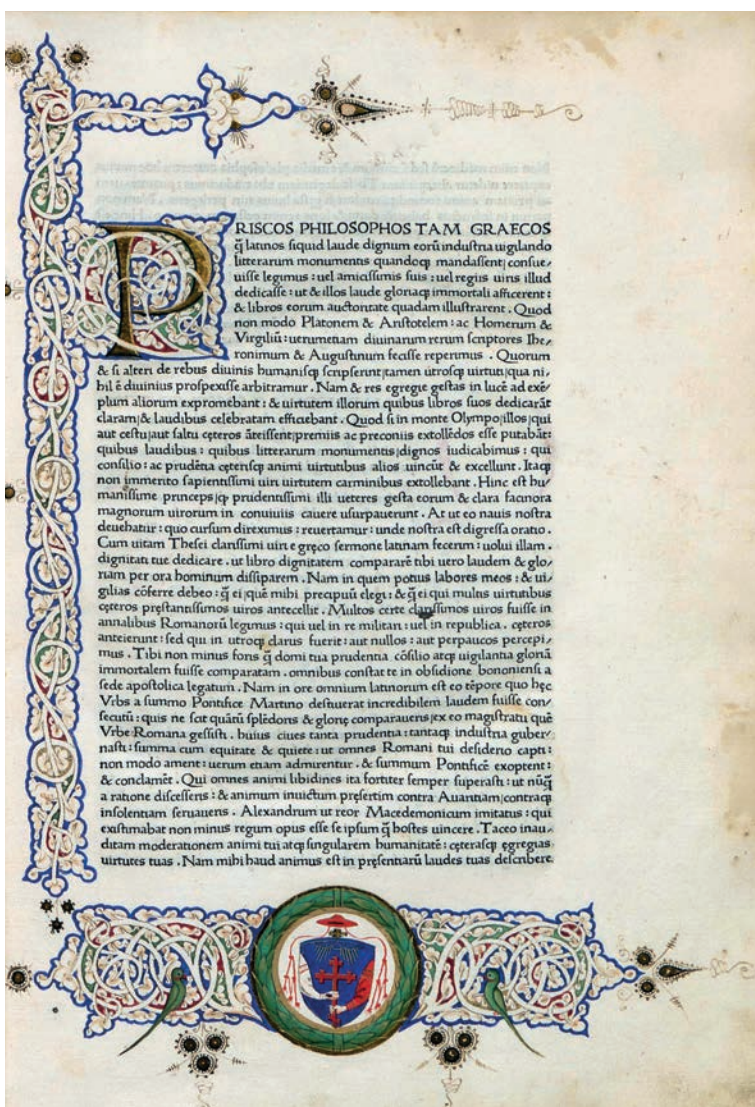 PRISCOS PHILOSOPHOS TAM GRAECOS
q̄ latinos siquid laude dignum eorū industria uigilando
litterarum monumentis quandoq; mandassent/consue/
uisse legimus : uel amicissimis suis : uel regiis uiris illud
dedicasse : ut & illos laude gloriaq; immortali afficerent :
& libros eorum auctoritate quadam illustrarent . Quod
non modo Platonem & Aristotelem : ac Homerum &
Virgiliū : uerumetiam diuinarum rerum scriptores Ihe/
ronimum & Augustinum fecisse reperimus . Quorum
& si alteri de rebus diuinis humanisq; scripserint/tamen utrosq; uirtuti/qua ni/
hil ē diuinius prospexisse arbitramur . Nam & res egregie gestas in lucē ad exē/
plum aliorum expromebant : & uirtutem illorum quibus libros suos dedicarāt
claram/& laudibus celebratam efficiebant . Quod si in monte Olympo/illos/qui
aut cestu/aut saltu cęteros āteissent/premiis ac preconiis extollēdos esse putabāt :
quibus laudibus : quibus litterarum monumentis/dignos iudicabimus : qui
consilio : ac prudētia cęterisq; animi uirtutibus alios uincūt & excellunt . Itaq;
non immerito sapientissimi uiri uirtutem carminibus extollebant . Hinc est hu/
manissime princeps/q; prudentissimi illi ueteres gesta eorum & clara facinora
magnorum uirorum in conuiuiis cauere usurpauerunt . At ut eo nauis nostra
deuehatur : quo cursum direximus : reuertamur : unde nostra est digressa oratio .
Cum uitam Thesei clarissimi uiri e gręco sermone latinam fecerim : uolui illam .
dignitati tue dedicare . ut libro dignitatem compararē tibi uero laudem & glo/
riam per ora hominum dissiparem . Nam in quem potius labores meos : & ui/
gilias cōferre debeo : q̄ ei/quē mibi precipuū elegi : & q̄ ei qui multis uirtutibus
cęteros pręstantissimos uiros antecellit . Multos certe clarissimos uiros fuisse in
annalibus Romanorū legimus : qui uel in re militari : uel in republica . cęteros
anteierunt : sed qui in utroq; clarus fuerit : aut nullos : aut perpaucos percepi/
mus . Tibi non minus foris q̄ domi tua prudentia cōsilio atq; uigilantia gloriā
immortalem fuisse comparatam . omnibus constat te in obsidione bononiensi a
sede apostolica legatum . Nam in ore omnium latinorum est eo tēpore quo hęc
Vrbs a summo Pontifice Martino destituerat incredibilem laudem fuisse con/
secutū : quis ne scit quātū splēdoris & glorię comparaueris/ex eo magistratu quē
Vrbe Romana gessisti . huius ciues tanta prudentia : tantaq; industria guber/
nasti : summa cum equitate & quiete : ut omnes Romani tui desiderio capti :
non modo ament : uerum etiam admirentur . & summum Pontificē exoptent :
& conclamēt . Qui omnes animi libidines ita fortiter semper superasti : ut nūq̄
a ratione discesseris : & animum inuictum pręsertim contra Auaritiam/contraq;
insolentiam seruaueris . Alexandrum ut reor Macedemonicum imitatus : qui
existimabat non minus regum opus esse se ipsum q̄ hostes uincere . Taceo inau/
ditam moderationem animi tui atq; singularem humanitatē : cęterasq; egregias
uirtutes tuas . Nam mihi haud animus est in pręsentiarū laudes tuas describere